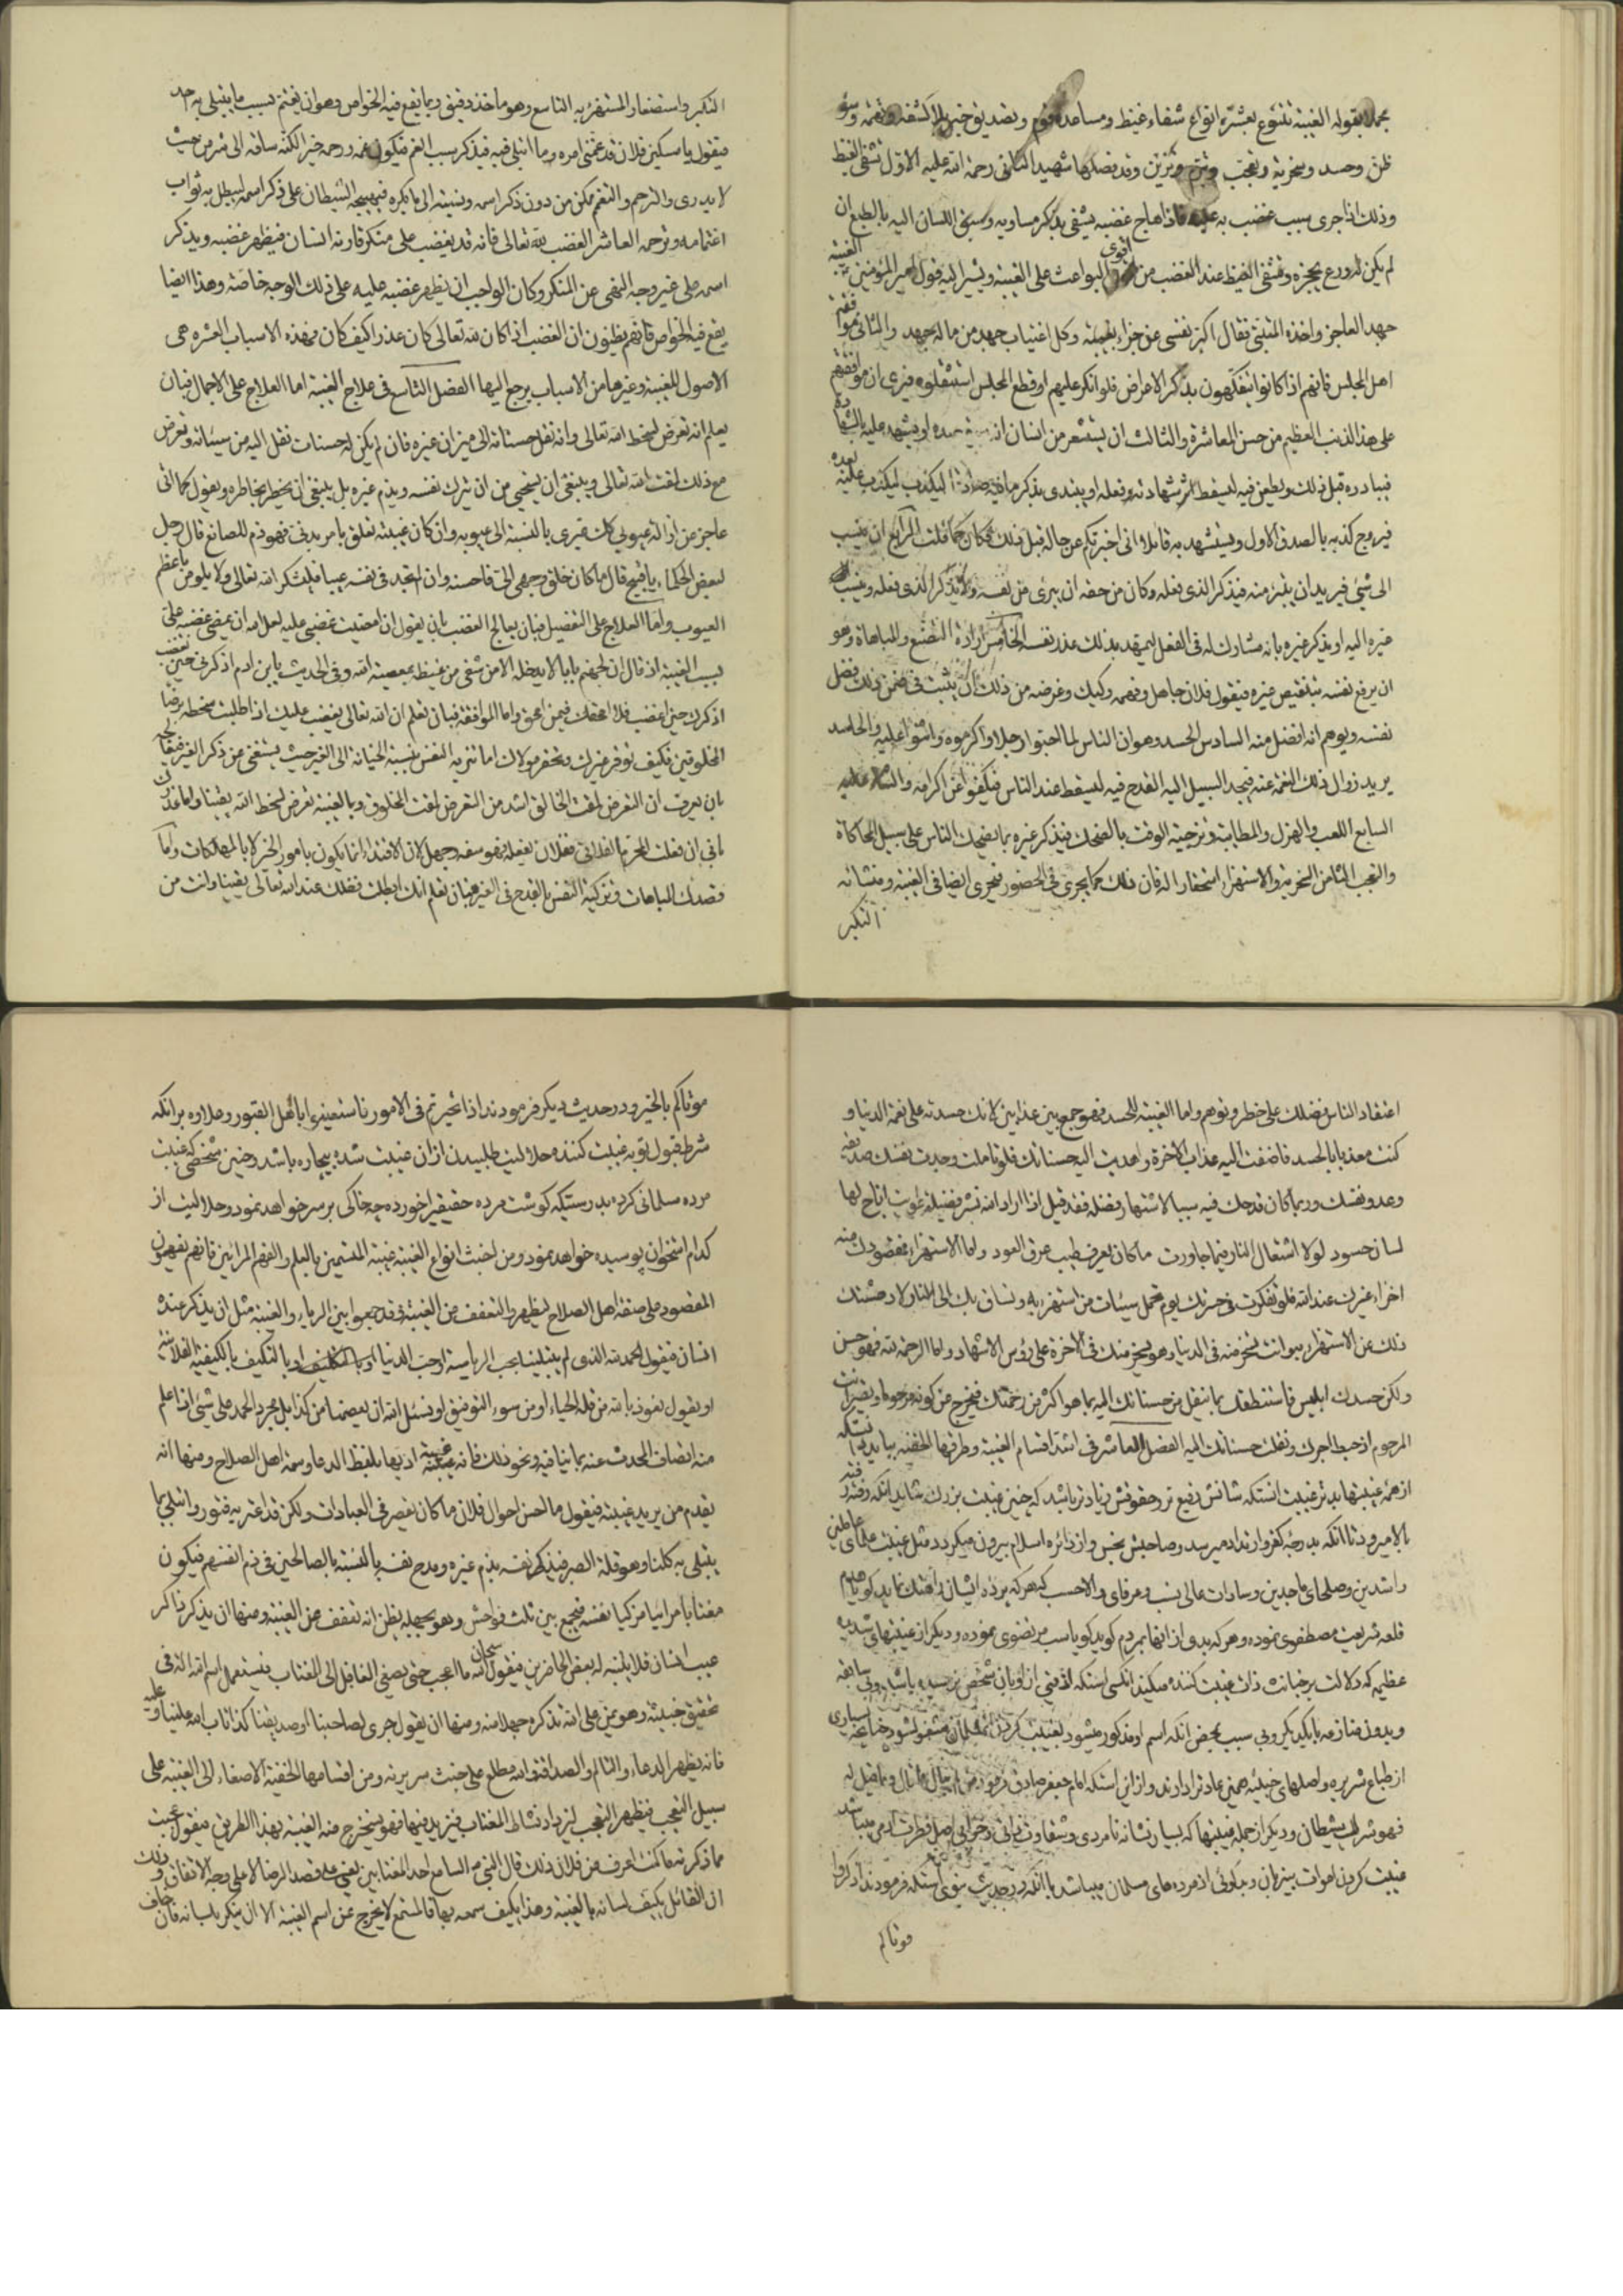 مجملا بقوله الغيبة تتنوع بعشرة انواع شفاء غيظ ومساعدة قوم وتصديق خبر بلا كشفه وتهمة وسوء
ظن وحسد وسخرية وتعجب وتبرم وتزين وقد فصلها شهيد الثاني رحمة الله عليه الاول تشفى الغيظ
وذلك اذا جرى سبب غضب به عليه فاذا هاج غضبه يشفى بذكر مساويه وسبق اللسان اليه بالطبع ان
لم يكن له ورع يحجزه وتشفى الغيظ عند الغضب من اقوى البواعث على الغيبة ويشير اليه قول امير المؤمنين الغيبة
جهد العاجز واخذه المتنبى فقال اكبر نفسى عن جزاء بغيبة وكل اغتياب جهد من ماله جهد والثانى موافقة
اهل المجلس فانهم اذا كانوا يتفكهون بذكر الاعراض فلو انكر عليهم او قطع المجلس استثقلوه فيرى ان موافقتهم
على هذا الذنب العظيم من حسن المعاشرة والثالث ان يستشعر من انسان انه او يشهد عليه بالشهادة
فيبادره قبل ذلك ويطعن فيه ليسقط اثر شهادته وفعله او يبتدى بذكر ما فيه صادقا ليكذب عليه بعده
فيروج كذبه بالصدق الاول ويستشهد به قائلا انى اخبرتكم عن حاله قبل ذلك فكان كما قلت الرابع ان ينسب
الى شئ فيريد ان يتبرء منه فيذكر الذى فعله وكان من حقه ان يبرى من نفسه ولا يذكر الذى فعله وينسب
غيره اليه او يذكر غيره بانه مشارك له فى الفعل ليتمهد بذلك عذر نفسه الخامس ارادة التصنع والمباهاة وهو
ان يرفع نفسه بتنقيص غيره فيقول فلان جاهل وفهمه ركيك وغرضه من ذلك ان يثبت فى ضمن ذلك فضل
نفسه ويوهم انه افضل منه السادس الحسد وهو ان الناس لما احبوا رجلا واكرموه واثنوا عليه والحاسد
يريد زوال ذلك النعمة عنه فيجد السبيل اليه القدح فيه ليسقط عند الناس فيكفوا عن اكرامه والثناء عليه
السابع اللعب والهزل والمطايبة وتزجية الوقت بالضحك فيذكر غيره بما يضحك الناس على سبيل المحاكاة
والتعجب الثامن السخرية والاستهزاء استحقارا له فان ذلك كما يجرى فى الحضور فيجرى ايضا فى الغيبة ومنشائه
التكبر
التكبر واستصغار المستهزء به التاسع وهو ماخذ دقيق ربما يقع فيه الخواص وهو ان يغتم بسبب ما يبتلى به احد
فيقول يا مسكين فلان قد غمنى امره وما ابتلى فيه فيذكر سبب الغم فيكون غمه ورحمه خيرا لكنه ساقه الى شر من حيث
لا يدرى والترحم والتغم ممكن من دون ذكر اسمه ونسبته الى ما يكره فيهيجه الشيطان على ذكر اسمه ليبطل به ثواب
اغتمامه وترحمه العاشر الغضب لله تعالى فانه قد يغضب على منكر قارنه انسان فيظهر غضبه ويذكر
اسمه على غير وجه النهى عن المنكر وكان الواجب ان يظهر غضبه عليه على ذلك الوجه خاصة وهذا ايضا
يقع فيه الخواص فانهم يظنون ان الغضب اذا كان لله تعالى كان عذرا كيف كان فهذه الاسباب العشرة هى
الاصول للغيبة وغيرها من الاسباب يرجع اليها الفصل التاسع فى علاج الغيبة اما العلاج على الاجمال فبان
يعلم انه تعرض لسخط الله تعالى وانه نقل حسناته الى ميزان غيره فان لم يكن له حسنات نقل اليه من سيئاته وتعرض
مع ذلك لمقت الله تعالى وينبغى ان يستحيى من ان يترك نفسه ويذم غيره بل ينبغى ان يخطر بخاطره ويقول كما انى
عاجز عن ازالة عيوبى كك غيرى بالنسبة الى عيوبه وان كان غيبته تعلق بامر بدنى فهو ذم للصانع قال رجل
لبعض الحكماء يا قبيح قال ما كان خلق وجهى الى فاحسنه وان لم يجد فى نفسه عيبا فليشكر الله تعالى ولا يلوث باعظم
العيوب واما العلاج على التفصيل فبان يعالج الغضب بان يقول ان امضيت غضبى عليه لعل الله ان يمضى غضبه على
بسبب الغيبة اذ قال ان لجهنم بابا لا يدخله الا من شفى من غيظه بمعصية الله وفى الحديث يا بن ادم اذكرنى حين تغضب
اذكرك حين اغضب فلا امحقك فيمن امحق واما الموافقة فبان تعلم ان الله تعالى يغضب عليك اذا طلبت سخطه برضا
المخلوقين فكيف توقر غيرك وتحقر مولاك اما تنزيه النفس بنسبة الخيانة الى الغير حيث يستغنى عن ذكر الغير فيعالجه
بان يعرف ان التعرض لمقت الخالق اشد من التعرض لمقت المخلوق وبالغيبة تعرض لسخط الله يقينا واما عذرك
بانى ان فعلت المحرم الفلانى ففلان يفعله فهو سفه وجهل لان الاقتداء انما يكون بامور الخير لا بالمهلكات واما
قصدك المباهات وتزكية النفس بالقدح فى الغير فبان تعلم انك ابطلت فضلك عند الله تعالى يقينا وانت من
اعتقاد الناس فضلك على خطر وتوهم واما الغيبة للحسد فهو جمع بين عذابين لانك حسدته على نعمة الدنيا و
كنت معذبا بالحسد فاضفت اليه عذاب الاخرة واهديت اليه حسناتك فلو تاملت وجدت نفسك صديقه
وعدو نفسك وربما كان قدحك فيه سببا لاشتهار فضله فقد قيل اذا اراد الله نشر فضيلة طويت اتاح لها
لسان حسود لولا اشتعال النار فيما جاورت ما كان يعرف طيب عرق العود واما الاستهزاء فمقصودك منه
اخزاء غيرك عند الله فلو تفكرت فى حسرتك يوم تحمل سيئات من استهزء به وتساق بك الى النار لادهشتك
ذلك عن الاستهزاء به وانت تسخر منه فى الدنيا وهو يسخر منك فى الاخرة على رؤس الاشهاد واما الرحمة لله فهو حسن
ولكن حسدك ابليس فاستنطقك بما ينقل من حسناتك اليه بما هو اكثر من رحمتك فيخرج عن كونه مرحوما وتصير انت
المرحوم اذ حبط اجرك ونقلت حسناتك اليه الفصل العاشر فى اشد اقسام الغيبة وطرقها الخفية ببايد دانستكه
از همه غيبتها بدتر غيبت انستكه شانش رفيع تر وحقوقش زيادتر باشد كه چنين غيبت بزرك شايد انكه رفته رفته
بالا ميرود تا انكه بدرجه كفر وارتداد ميرسد وصاحبش نجس واز دائره اسلام بيرون ميكردد مثل غيبت علماى عاملين
راشدين وصلحاى ماجدين وسادات عالى نسب وعرفاى والاحسب كه هر كه بر در ايشان هتك نمايد كويا هدم
قلعه شريعت مصطفوى نموده وهر كه بدى از انها بمردم كويد كويا سب مرتضوى نموده وديكر از غيبتهاى شديده
عظيم كه دلالت بر خباثت ذات غيبت كننده ميكند انكسى استكه اذيتى از او بان شخص نرسيده باشد وبى سابقه
وبدون منازعه با يكديكر وبى سبب محض انكه اسم او مذكور ميشود بغيبت كردن مشغول شود چنانچه بسيارى
از طباع شريره واصلهاى خبيثه همين عادت را دارند واز اين استكه امام جعفر صادق فرمود من
فهو شرك شيطان وديكر از جمله غيبتها كه بسيار نشانه نامردى وشقاوت ذاتى وخرابى اصل فطرت ادمى ميباشد
غيبت كردن اموات بيزبان وبدكوئى از مرده هاى مسلمان ميباشد با انكه در حديث نبوى استكه فرمودند اذكروا
موتاكم
موتاكم بالخير ودر حديث ديكر فرمودند اذا تحيرتم فى الامور فاستعينوا باهل القبور وعلاوه بر انكه
شرط قبول توبه غيبت كننده حلاليت طلبيدن از ان غيبت شده بيچاره باشد وچنين شخصى كه غيبت
مرده مسلمانى كرده بدرستيكه كوشت مرده حقيقيرا خورده چه خاكى بر سر خواهد نمود وحلاليت از
كدام استخوان پوسيده خواهد نمود ومن اخبث انواع الغيبة غيبة المتسمين بالعلم والفهم المرائين فانهم يفهمون
المقصود على صفة اهل الصلاح ليظهر والتعفف من الغيبة وقد جمعوا بين الرياء والغيبة مثل ان يذكر عنده
انسان فيقول الحمد لله الذى لم يبتلينا بحب الرياسة او حب الدنيا او بالتكيف بالكيفية الفلانية
او يقول نعوذ بالله من قلة الحياء او من سوء التوفيق او نسئل الله ان يعصمنا من كذا بل مجرد الحمد على شئ اذا علم
منه اتصاف المحدث عنه بما ينافيه ونحو ذلك فانه غيبة اديها بلفظ الدعا وسمة اهل الصلاح ومنها انه
يقدم من يريد غيبته فيقول ما احسن احوال فلان ما كان يقصر فى العبادات ولكن قد اعتريه فتور وابتلى بما
يبتلى به كلنا وهو قلة الصبر فيذكر نفسه بذم غيره ومدح نفسه بالنسبة بالصالحين فى ذم انفسهم فيكون
مغتابا مرائيا مزكيا نفسه فيجمع بين ثلث فواحش وهو بجهله يظن انه تعفف عن الغيبة ومنها ان يذكر ذاكر
عيب انسان فلا يتنبه له بعض الحاضرين فيقول سبحان الله ما اعجب حتى يصغى الغافل الى المغتاب فيستعمل اسم الله الة فى
تحقيق خبيثه وهو يمن على الله بذكره جهلا منه ومنها ان يقول جرى لصاحبنا او صديقنا كذا تاب الله علينا وعليه
فانه يظهر الدعاء والتالم والصداقة والله مطلع على خبث سريرته ومن اقسامها الخفية الاصغاء الى الغيبة على
سبيل التعجب فيظهر التعجب ليزداد نشاط المغتاب فيزيد فيها فهو يستخرج منه الغيبة بهذا الطريق فيقول عجبت
مما ذكرته ما كنت اعرف من فلان ذلك قال النبى ص السامع احد المغتابين يعنى على قصد الرضا لا على وجه الاتفاق وذلك
ان القائل يكيف لسانه بالغيبة وهذا يكيف سمعه بها فالمستمع لا يخرج عن اسم الغيبة الا ان ينكر بلسانه فان خاف